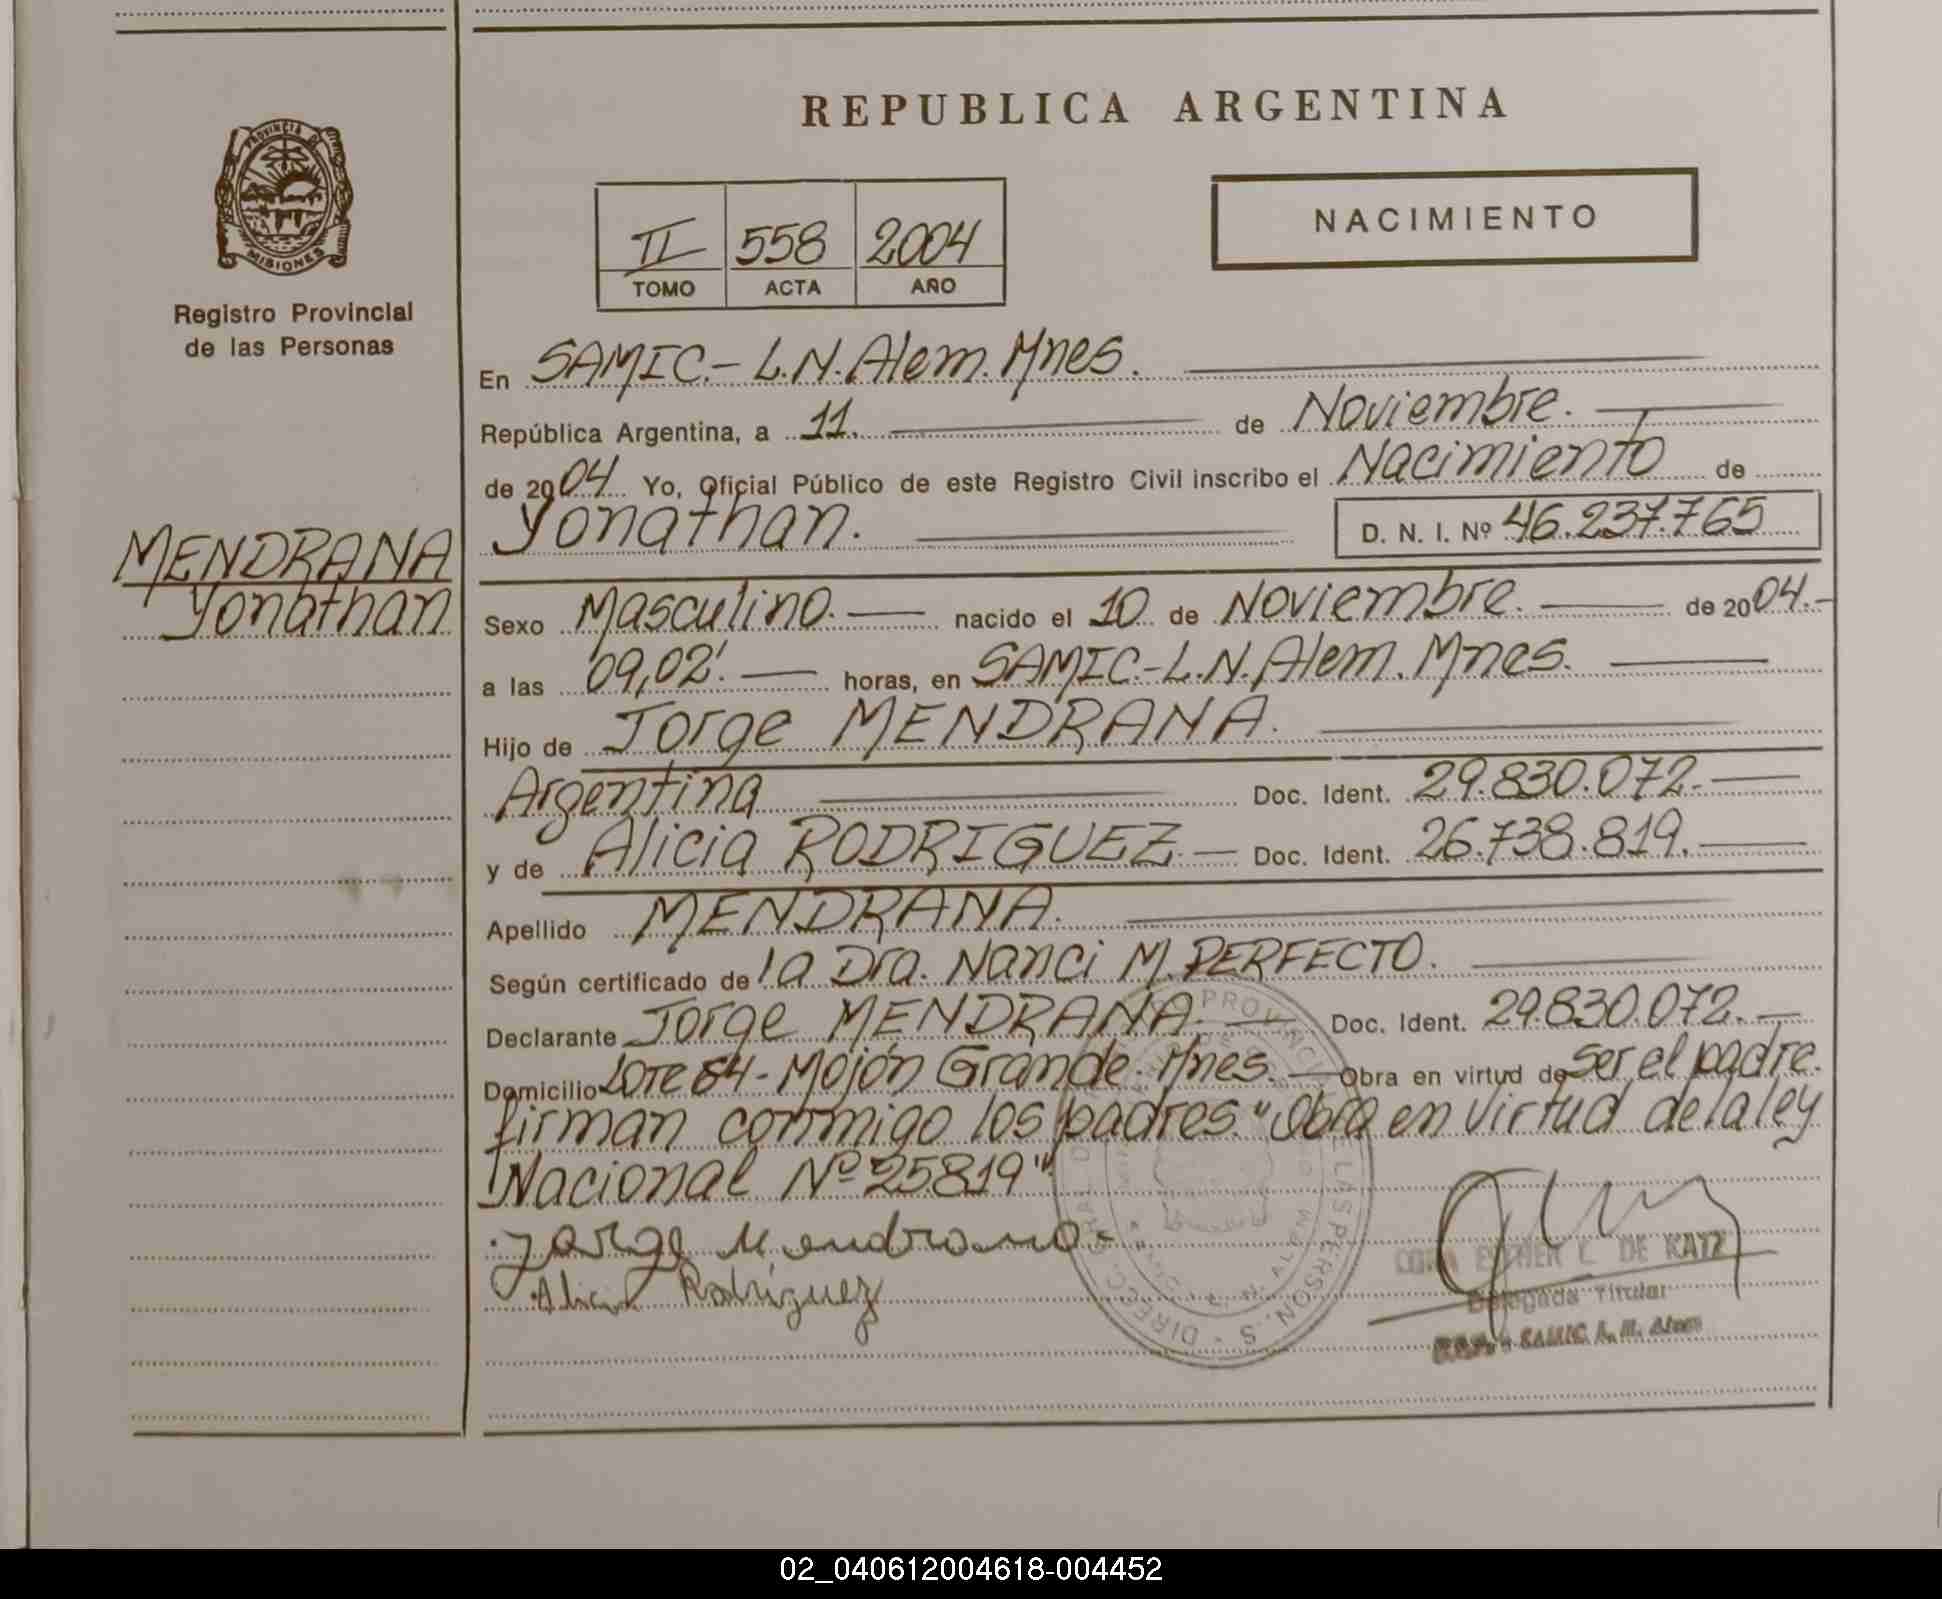 REPUBLICA ARGENTINA
PROVINCIA DE
MISIONES
Registro Provincial
de las Personas
II 558 2004
TOMO ACTA AÑO
NACIMIENTO
En SAMIC.- L.N.Alem.Mnes.
República Argentina, a 11. de Noviembre.
de 2004 Yo, Oficial Público de este Registro Civil inscribo el Nacimiento de
Yonathan. D. N. I. Nº 46.237.765
MENDRANA
Yonathan
Sexo Masculino. nacido el 10 de Noviembre. de 2004.-
a las 09,02'. horas, en SAMIC.-L.N.Alem.Mnes.
Hijo de Jorge MENDRANA.
Argentina Doc. Ident. 29.830.072.
y de Alicia RODRIGUEZ. Doc. Ident. 26.738.819.
Apellido MENDRANA.
Según certificado de la Dra. Nanci M. PERFECTO.
Declarante Jorge MENDRANA. Doc. Ident. 29.830.072.
Domicilio Lote 64 - Mojón Grande. Mnes. Obra en virtud de ser el padre.
firman conmigo los padres. "Obra en virtud de la ley
Nacional Nº 25819"
Jorge Mendrana
Alicia Rodriguez
ESTHER C. DE KATZ
Delegada Titular
SAMIC. L. N. Alem
02_040612004618-004452